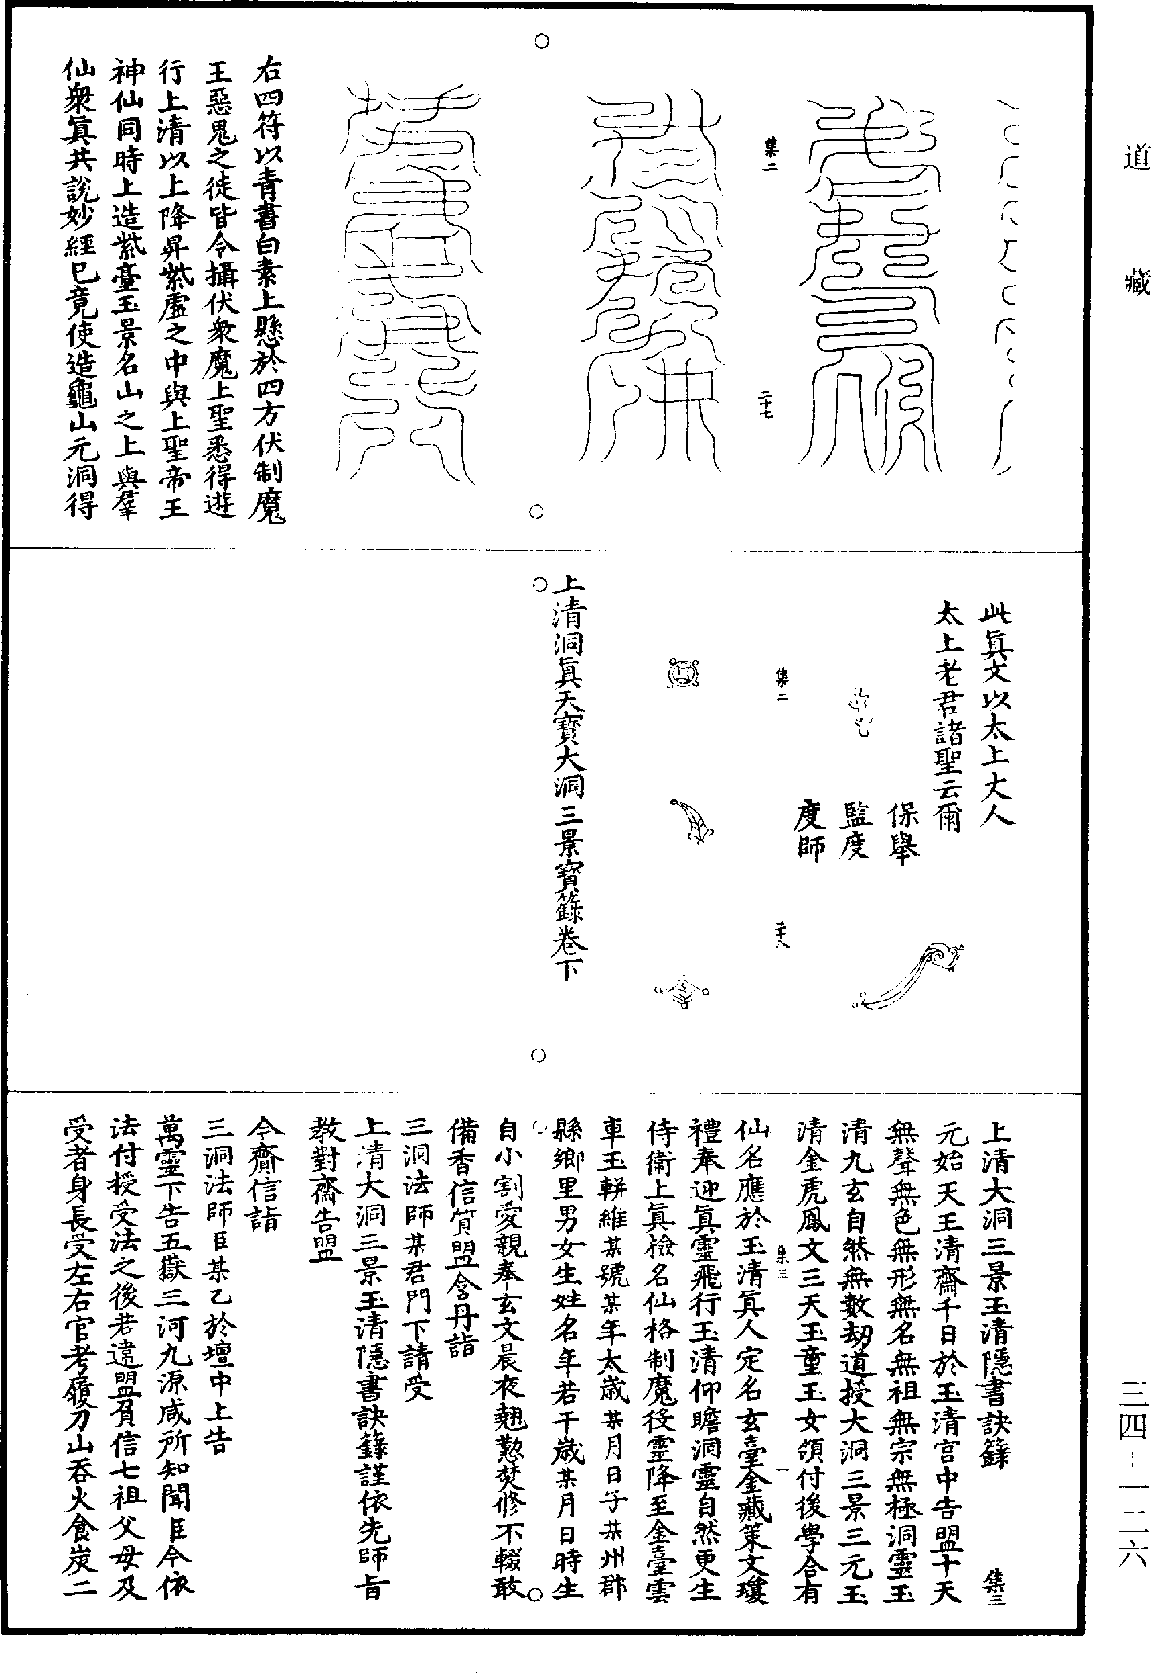 道藏
集二
二十七
右四符以青書白素上懸於四方伏制魔
王惡鬼之徒皆令攝伏衆魔上聖悉得遊
行上清以上降昇紫虛之中與上聖帝王
神仙同時上造紫臺玉景名山之上與羣
仙衆眞共說妙經已竟使造龜山元洞得
此眞文以太上大人
太上老君諸聖云爾
保舉
監度
度師
集二
二十八
上清洞眞天寶大洞三景寶籙卷下
上清大洞三景玉清隱書訣籙
集三
元始天王清齋千日於玉清宮中告盟十天
無聲無色無形無名無祖無宗無極洞靈玉
清九玄自然無數劫道授大洞三景三元玉
清金虎鳳文三天玉童玉女領付後學合有
集三
一
仙名應於玉清眞人定名玄臺金藏策文瓊
禮奉迎眞靈飛行玉清仰瞻洞靈自然更生
侍衛上眞檢名仙格制魔役靈降至金臺雲
車玉軿維某號某年太歲某月日子某州郡
縣鄉里男女生姓名年若干歲某月日時生
自小割愛親奉玄文晨夜翹懃焚修不輟敢
備香信質盟含丹詣
三洞法師某君門下請受
上清大洞三景玉清隱書訣籙謹依先師旨
教對齋告盟
今齎信詣
三洞法師臣某乙於壇中上告
萬靈下告五嶽三河九源咸所知聞臣今依
法付授受法之後若違盟負信七祖父母及
受者身長受左右官考履刀山吞火食炭二
三四-一二六